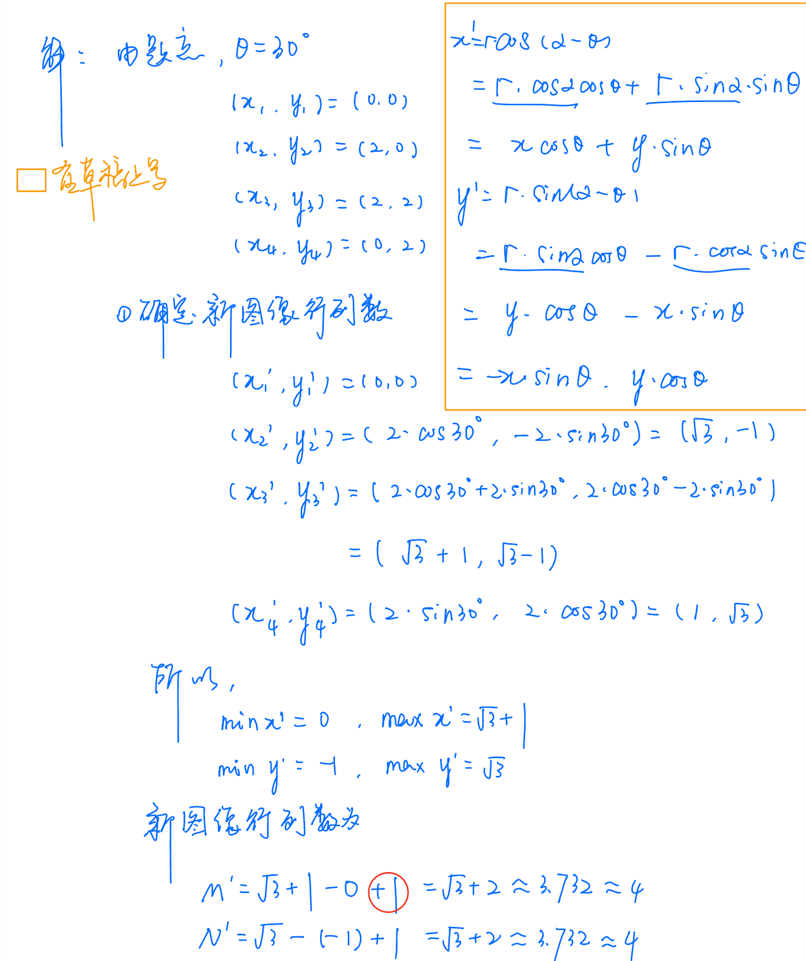 解：由题意，θ=30°
(x₁, y₁)=(0,0)
(x₂, y₂)=(2,0)
(x₃, y₃)=(2,2)
(x₄, y₄)=(0,2)
在草稿上写
x'=r·cos(α-θ)
=r·cosαcosθ+r·sinα·sinθ
= xcosθ + y·sinθ
y'=r·sin(α-θ)
=r·sinαcosθ - r·cosαsinθ
= y·cosθ - x·sinθ
= -x·sinθ. y·cosθ
①确定新图像行列数
(x₁', y₁')=(0,0)
(x₂', y₂')=(2·cos30°, -2·sin30°)=(√3, -1)
(x₃', y₃')=(2·cos30°+2·sin30°, 2·cos30°-2·sin30°)
=(√3+1, √3-1)
(x₄', y₄')=(2·sin30°, 2·cos30°)=(1, √3)
所以,
min x'=0, max x'=√3+1
min y'=-1, max y'=√3
新图像行列数为
M'=√3+1-0+1=√3+2≈3.732≈4
N'=√3-(-1)+1=√3+2≈3.732≈4